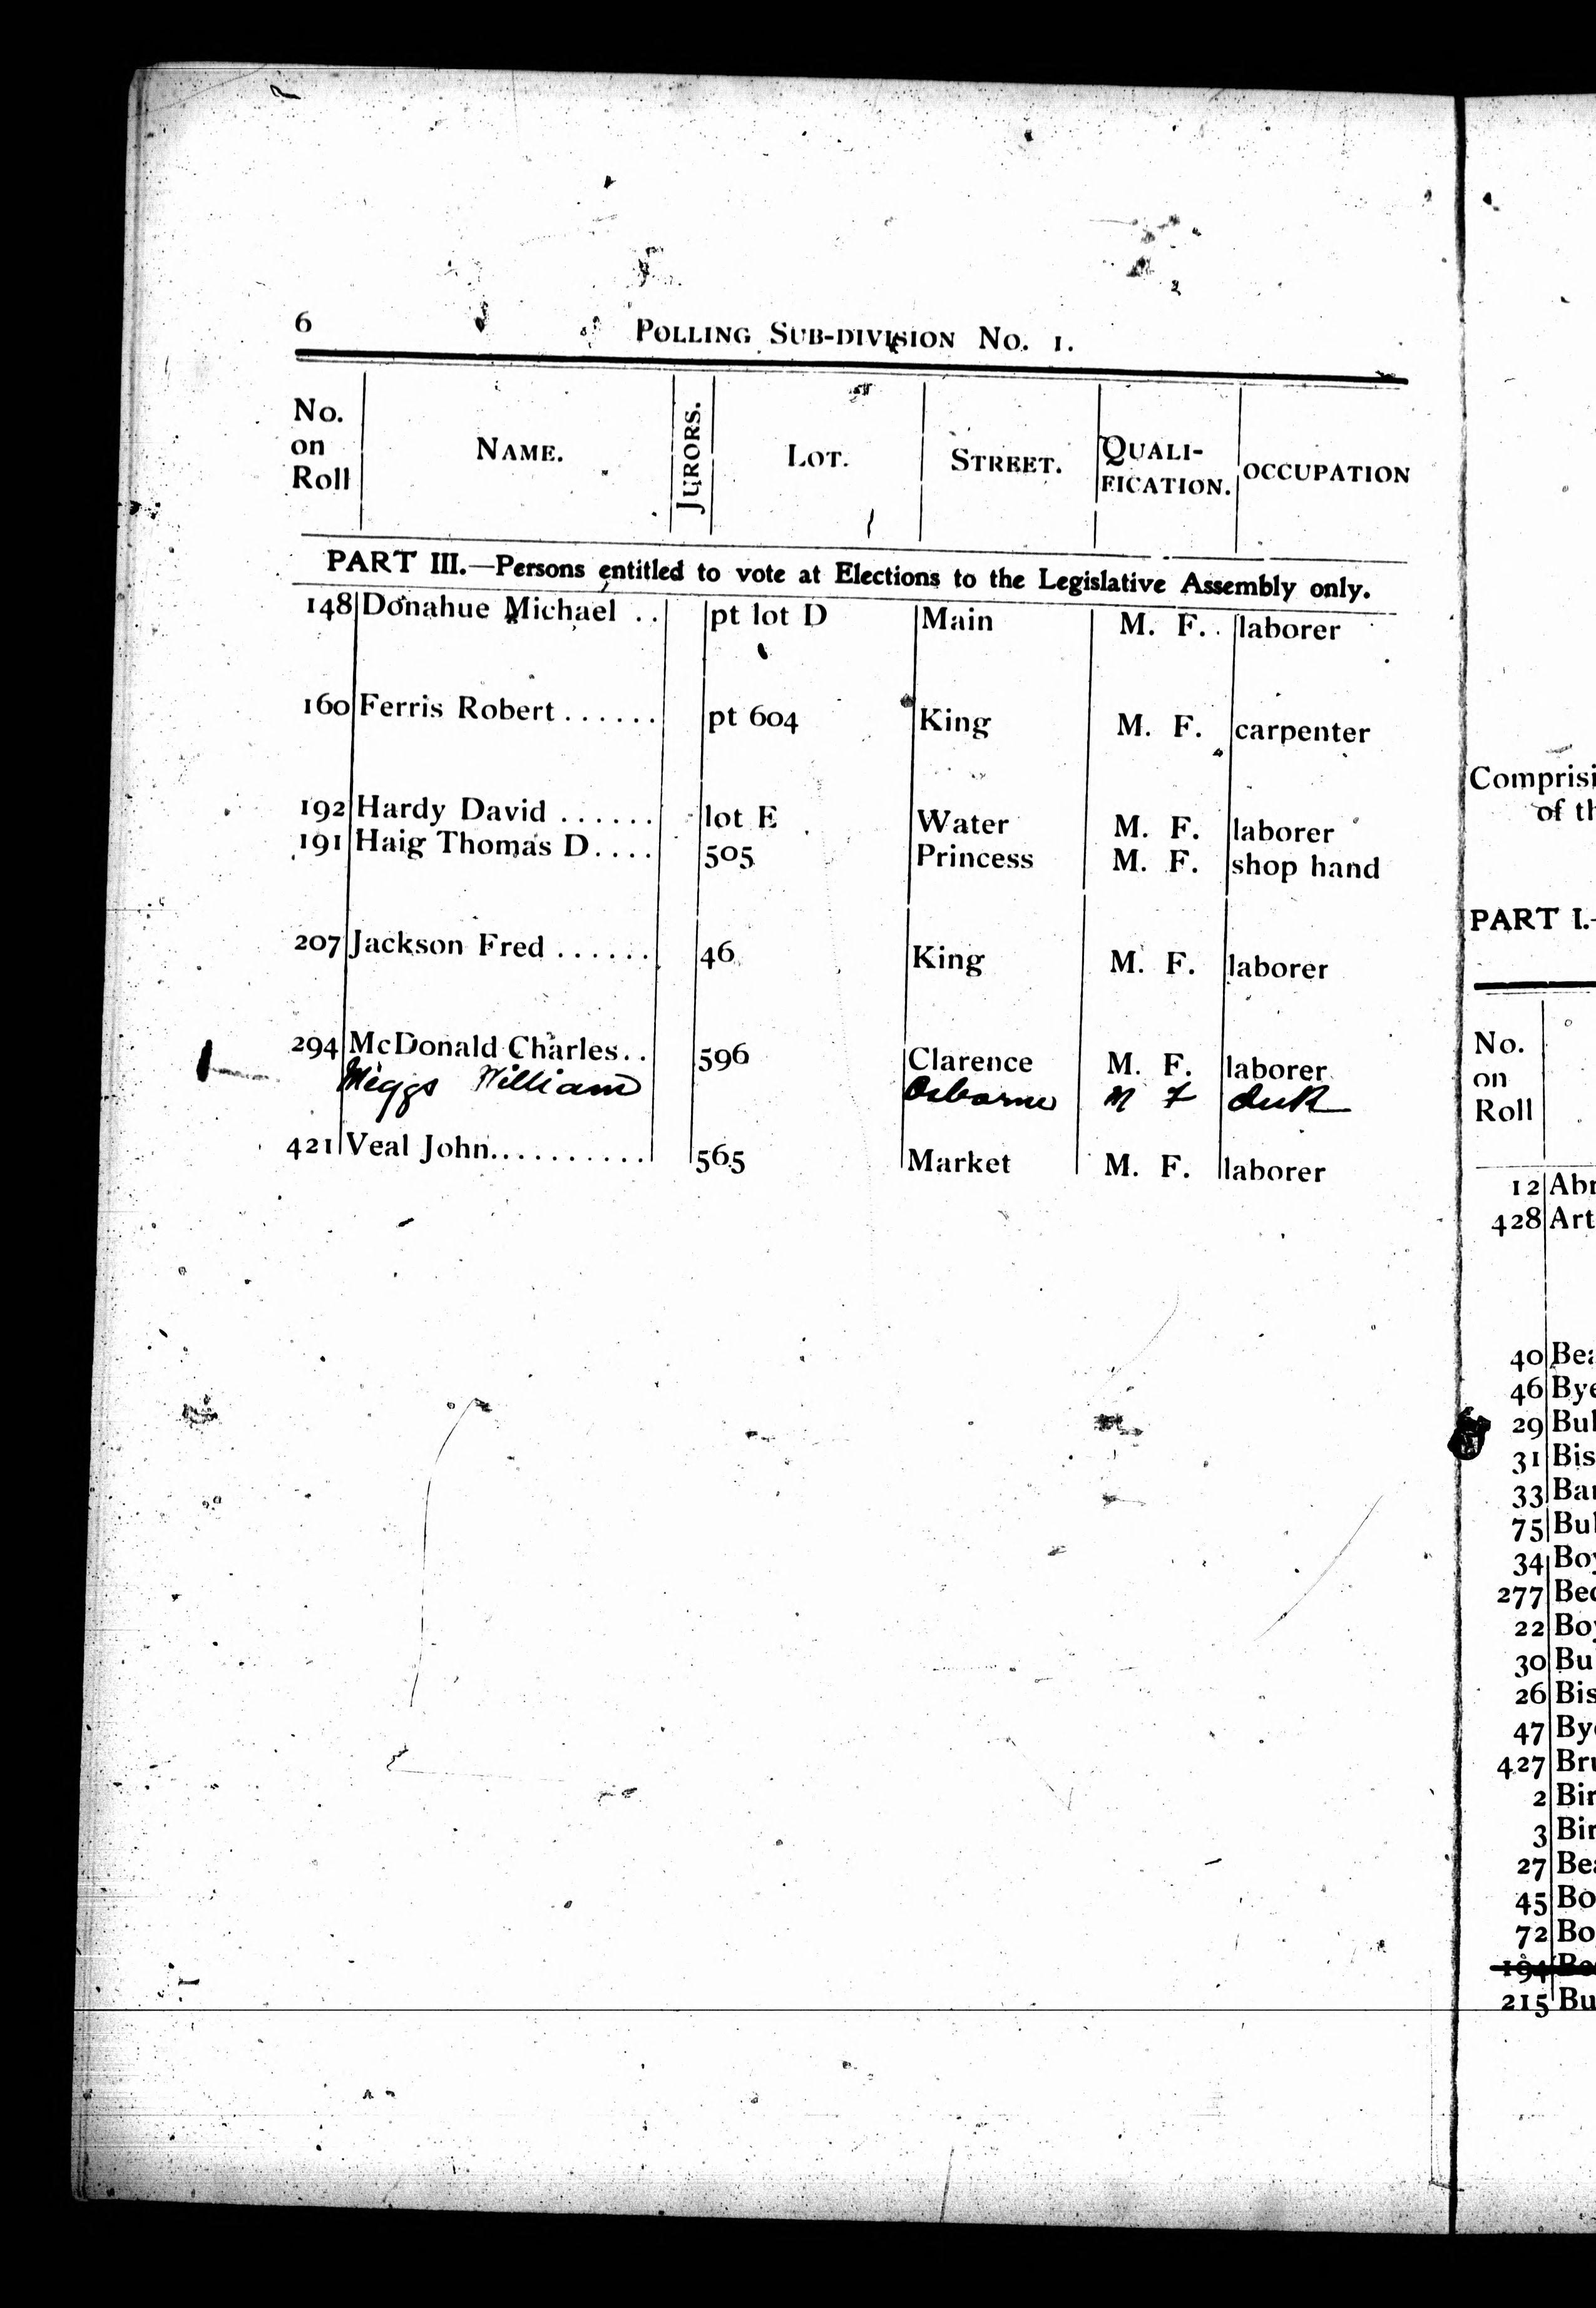 6 POLLING SUB-DIVISION No. 1.
No. on Roll | NAME. | JURORS. | LOT. | STREET. | QUALI-FICATION. | OCCUPATION
PART III.—Persons entitled to vote at Elections to the Legislative Assembly only.
148 Donahue Michael .. pt lot D Main M. F. laborer
160 Ferris Robert ...... pt 604 King M. F. carpenter
192 Hardy David ...... lot E Water M. F. laborer
191 Haig Thomas D.... 505 Princess M. F. shop hand
207 Jackson Fred ...... 46 King M. F. laborer
294 McDonald Charles.. 596 Clarence M. F. laborer
Meggs William Osborne M F
421 Veal John.......... 565 Market M. F. laborer
Comprisi
of th
PART I.-
No.
on
Roll
12 Abr
428 Art
40 Bea
46 Bye
29 Bul
31 Bis
33 Bar
75 Bul
34 Boy
277 Bec
22 Boy
30 Bu
26 Bis
47 Bye
427 Bru
2 Bir
3 Bir
27 Bea
45 Bo
72 Bo
194 Be
215 Bu